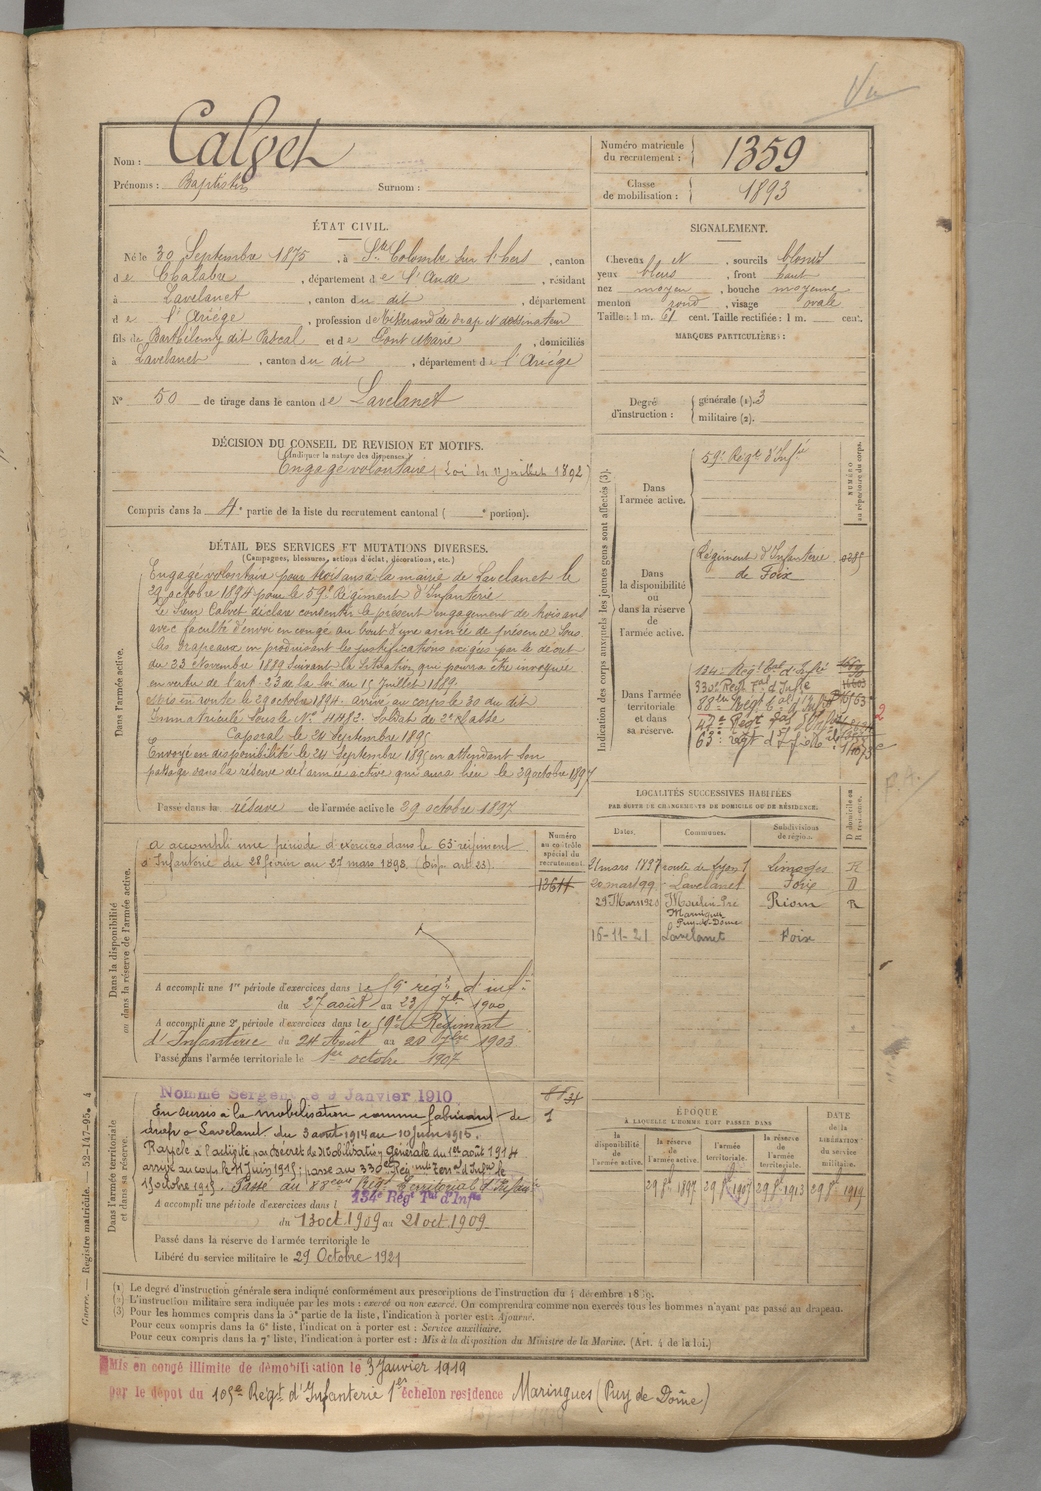 Vu
Nom : Calvet
Prénoms : Baptistin Surnom :
Numéro matricule du recrutement : 1359
Classe de mobilisation : 1893
ÉTAT CIVIL.
Né le 30 Septembre 1875, à Ste Colombe sur l'hers, canton
de Chalabre, département de l'Aude, résidant
à Lavelanet, canton du dit, département
de l'Ariège, profession de tisserand de drap et dessinateur
fils de Barthélemy dit Pascal et de Pont Marie, domiciliés
à Lavelanet, canton du dit, département de l'Ariège
N° 50 de tirage dans le canton de Lavelanet
SIGNALEMENT.
Cheveux et, sourcils blonds
yeux bleus, front haut
nez moyen, bouche moyenne
menton rond, visage ovale
Taille : 1 m. 61 cent. Taille rectifiée : 1 m. cent.
MARQUES PARTICULIÈRES :
Degré d'instruction : générale (1). 3
militaire (2).
DÉCISION DU CONSEIL DE REVISION ET MOTIFS.
(Indiquer la nature des dispenses.)
Engagé volontaire (Loi du 11 juillet 1892)
Compris dans la 4e partie de la liste du recrutement cantonal ( e portion).
DÉTAIL DES SERVICES ET MUTATIONS DIVERSES.
(Campagnes, blessures, actions d'éclat, décorations, etc.)
Dans l'armée active.
Engagé volontaire pour trois ans à la mairie de Lavelanet le
29 octobre 1894 pour le 59e Régiment d'Infanterie.
Le Sieur Calvet déclare consentir le présent engagement de trois ans
avec faculté d'envoi en congé au bout d'une année de présence sous
les drapeaux en produisant les justifications exigées par le décret
du 23 Novembre 1889 suivant la situation qui pourra être invoquée
en vertu de l'art. 23 de la loi du 15 Juillet 1889.
Mis en route le 29 octobre 1894. Arrivé au corps le 30 du dit
Immatriculé sous le N° 4482. Soldat de 2e classe
Caporal le 24 Septembre 1895
Envoyé en disponibilité le 24 Septembre 1895 en attendant son
passage dans la réserve de l'armée active qui aura lieu le 29 octobre 1897
Passé dans la réserve de l'armée active le 29 octobre 1897
Indication des corps auxquels les jeunes gens sont affectés (3).
Dans l'armée active.
59e Régt d'Infie
NUMÉRO au répertoire du corps.
Dans la disponibilité ou dans la réserve de l'armée active.
Régiment d'Infanterie
de Foix
Dans l'armée territoriale et dans sa réserve.
134e Régt tal d'Infie
330e Régt Tal d'Infie
88e Régt tal d'Infie
63e régt d'Infie
LOCALITÉS SUCCESSIVES HABITÉES
PAR SUITE DE CHANGEMENTS DE DOMICILE OU DE RÉSIDENCE.
Dates. Communes. Subdivisions de région. D domicile ou R résidence.
21 mars 1897 route de Lyon 1 Limoges R
20 mars 99 Lavelanet Foix D
29 Mars 1920 Moulin Pré Maringues Puy-de-Dôme Riom R
16-11-21 Lavelanet Foix
Dans la disponibilité ou dans la réserve de l'armée active.
Numéro au contrôle spécial du recrutement.
a accompli une période d'exercices dans le 63e régiment
d'Infanterie du 28 février au 27 mars 1898. (Disp. art. 23).
A accompli une 1re période d'exercices dans le 59e régt d'inf.
du 27 août au 23 7bre 1900
A accompli une 2e période d'exercices dans le 59e Régiment
d'Infanterie du 24 Août au 20 7bre 1903
Passé dans l'armée territoriale le 1er octobre 1907
Dans l'armée territoriale et dans sa réserve.
Nommé Sergent le 9 Janvier 1910
En sursis à la mobilisation comme fabricant de
drap à Lavelanet du 3 août 1914 au 10 juin 1915.
Rappelé à l'activité par Décret de Mobilisation générale du 1er août 1914
arrivé au corps le 11 Juin 1915; passé au 330e Régiment Terral d'Infie le
15 octobre 1915. Passé au 88eme Régt Territorial d'Infanie
A accompli une période d'exercices dans l 134e Régt Tal d'Infie
du 13 oct. 1909 au 21 oct. 1909.
Passé dans la réserve de l'armée territoriale le
Libéré du service militaire le 29 Octobre 1921
ÉPOQUE
À LAQUELLE L'HOMME DOIT PASSER DANS
DATE de la LIBÉRATION du service militaire.
la disponibilité de l'armée active. la réserve de l'armée active. l'armée territoriale. la réserve de l'armée territoriale.
29 8bre 1897 29 8bre 1907 29 8bre 1913 29 8bre 1919
(1) Le degré d'instruction générale sera indiqué conformément aux prescriptions de l'Instruction du 4 décembre 1889.
(2) L'instruction militaire sera indiquée par les mots : exercé ou non exercé. On comprendra comme non exercés tous les hommes n'ayant pas passé au drapeau.
(3) Pour les hommes compris dans la 5e partie de la liste, l'indication à porter est : Ajourné.
Pour ceux compris dans la 6e liste, l'indication à porter est : Service auxiliaire.
Pour ceux compris dans la 7e liste, l'indication à porter est : Mis à la disposition du Ministre de la Marine. (Art. 4 de la loi.)
Mis en congé illimité de démobilisation le 3 Janvier 1919
par le dépôt du 105e Régt d'Infanterie 1er échelon résidence Maringues (Puy de Dôme)
Guerre. — Registre matricule. — 52-147-95. 4